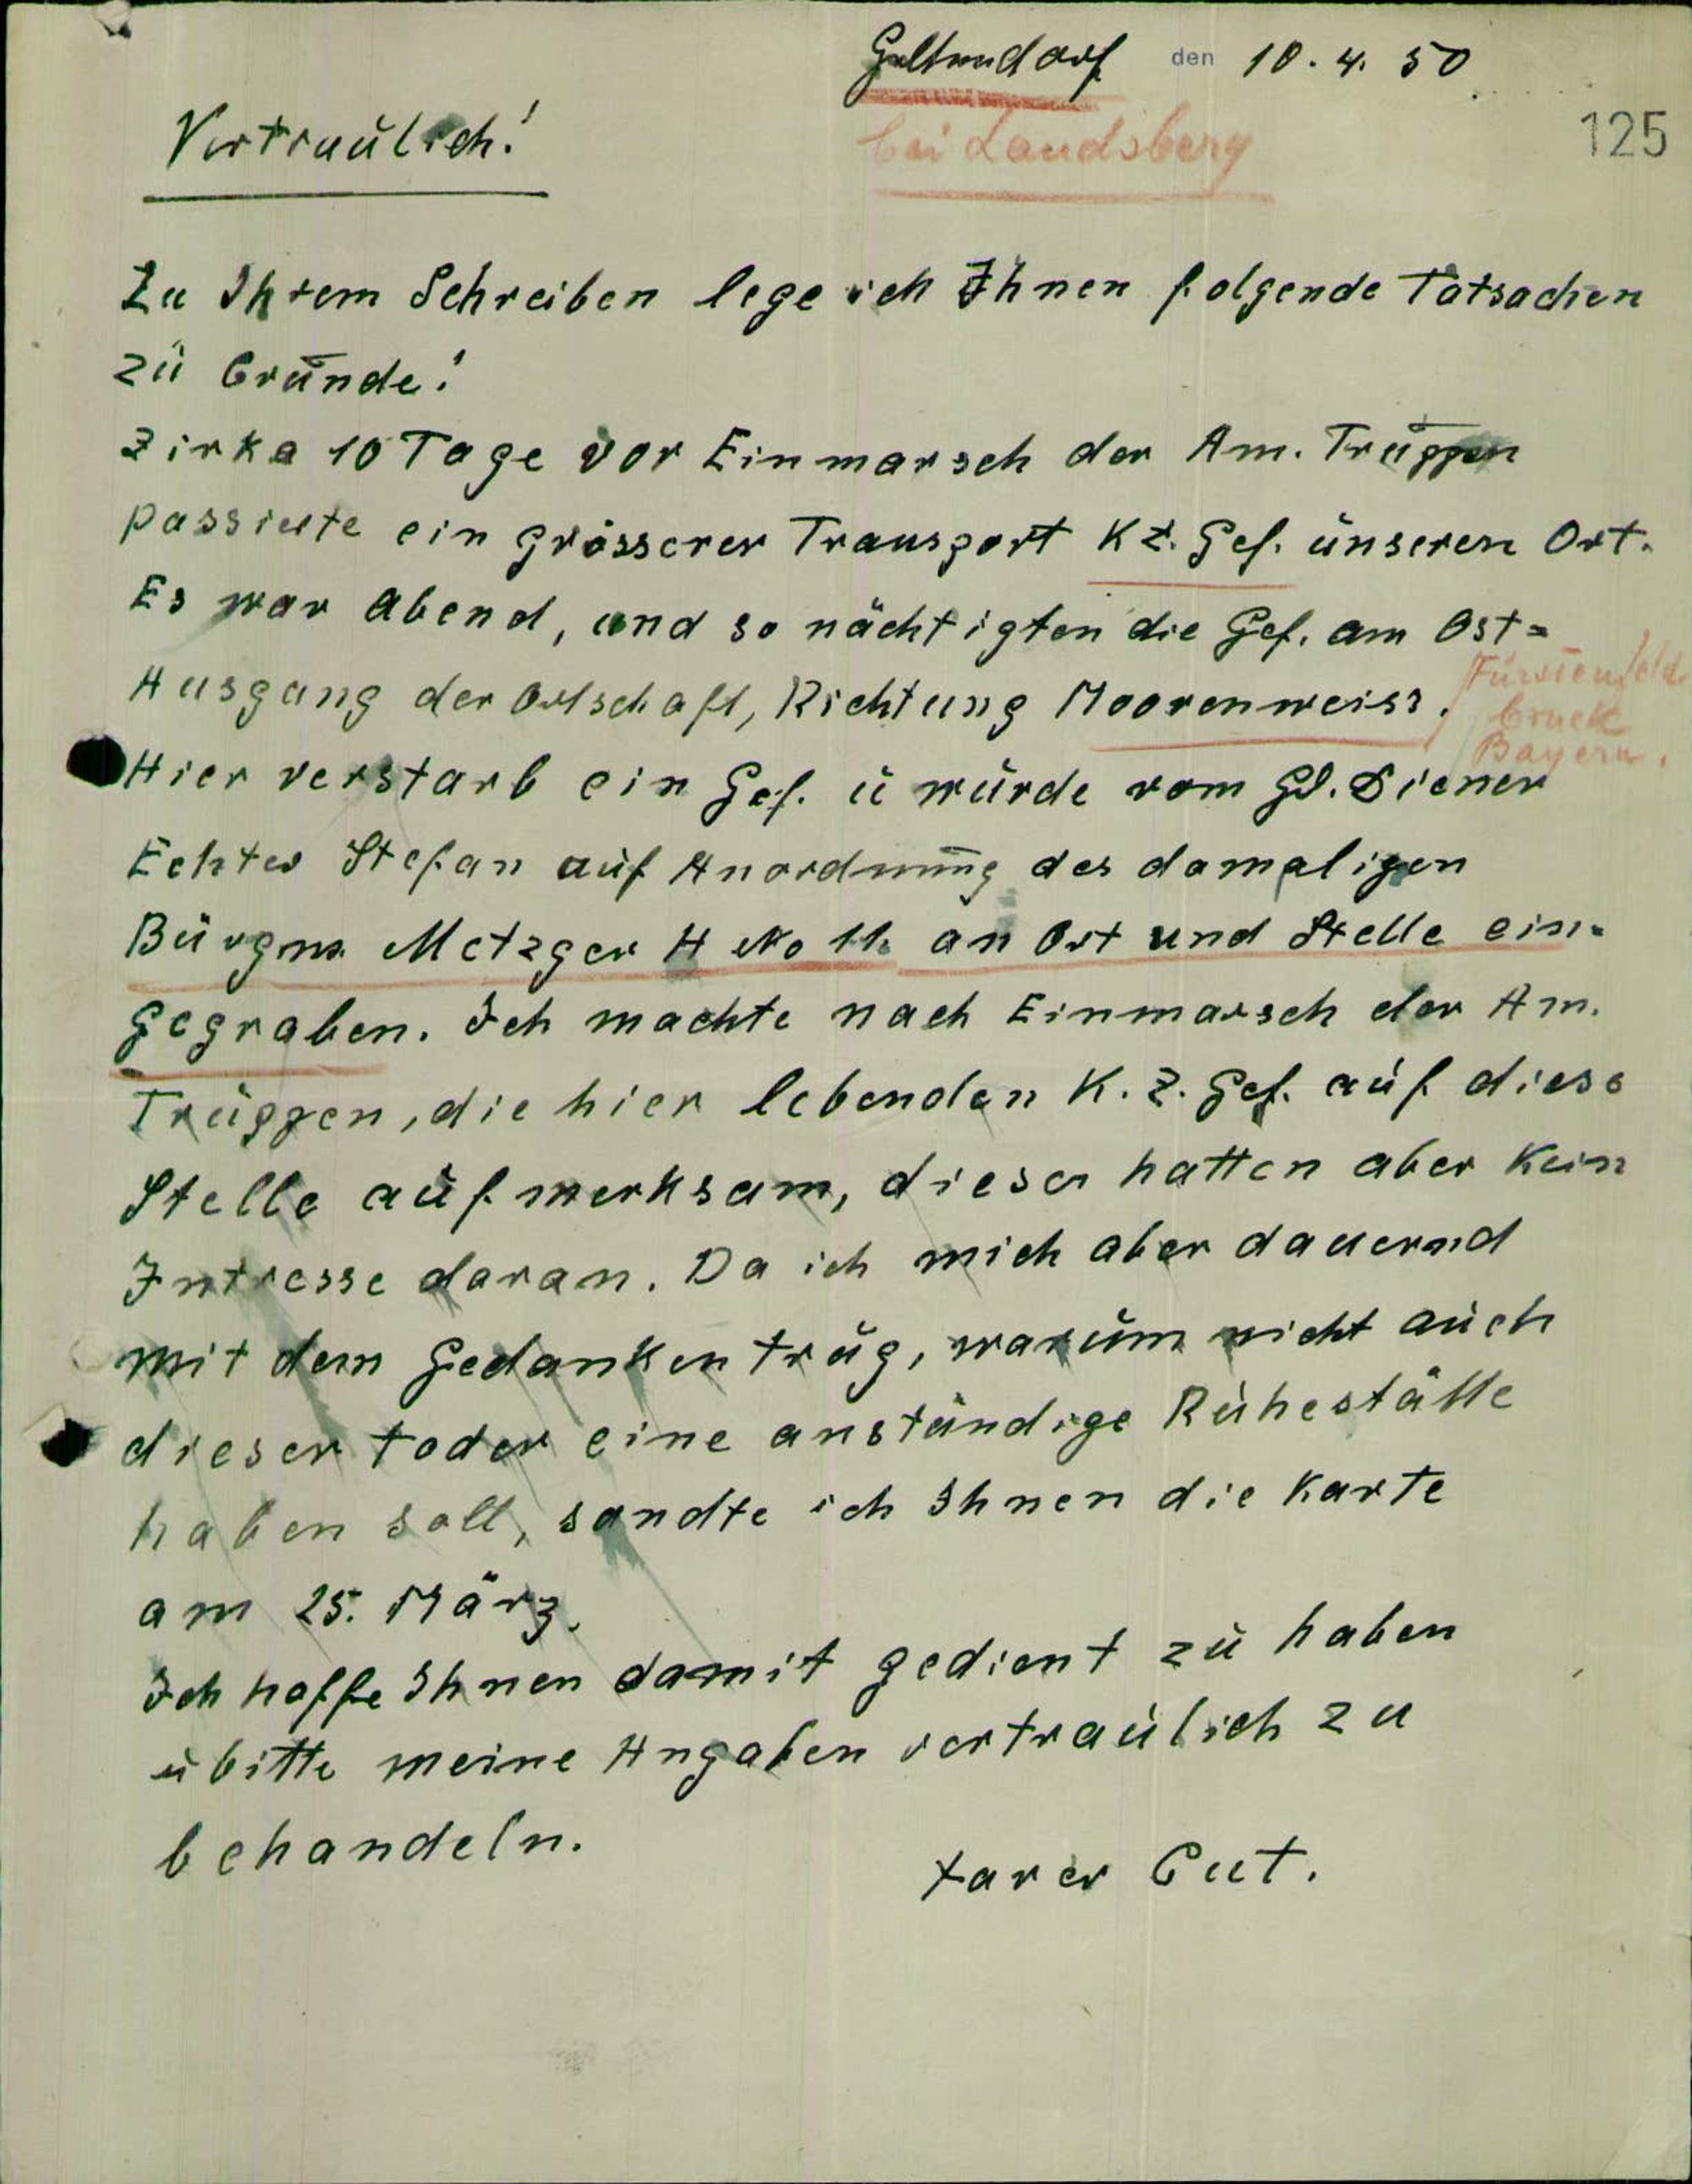 Geltendorf den 10.4.50
bei Landsberg
125
Vertraulich!
Zu Ihrem Schreiben lege ich Ihnen folgende Tatsachen
zu Grunde!
Zirka 10 Tage vor Einmarsch der Am. Truppen
passierte ein grösserer Transport KZ. Gef. unseren Ort.
Es war Abend, und so nächtigten die Gef. am Ost=
Ausgang der Ortschaft, Richtung Moorenweiss.
Fürstenfeld
bruck
Bayern.
Hier verstarb ein Gef. u wurde vom Gd. Diener
Echter Stefan auf Anordnung des damaligen
Bürgm. Metzger H No 11. an Ort und Stelle ein-
gegraben. Ich machte nach Einmarsch der Am.
Truppen, die hier lebenden K.Z. Gef. auf diese
Stelle aufmerksam, dieser hatten aber kein
Intresse daran. Da ich mich aber dauernd
mit dem Gedanken trug, warum nicht auch
dieser toder eine anständige Ruhestätte
haben soll, sandte ich Ihnen die Karte
am 25. März.
Ich hoffe Ihnen damit gedient zu haben
u bitte meine Angaben vertraulich zu
behandeln.
Xaver Gut.